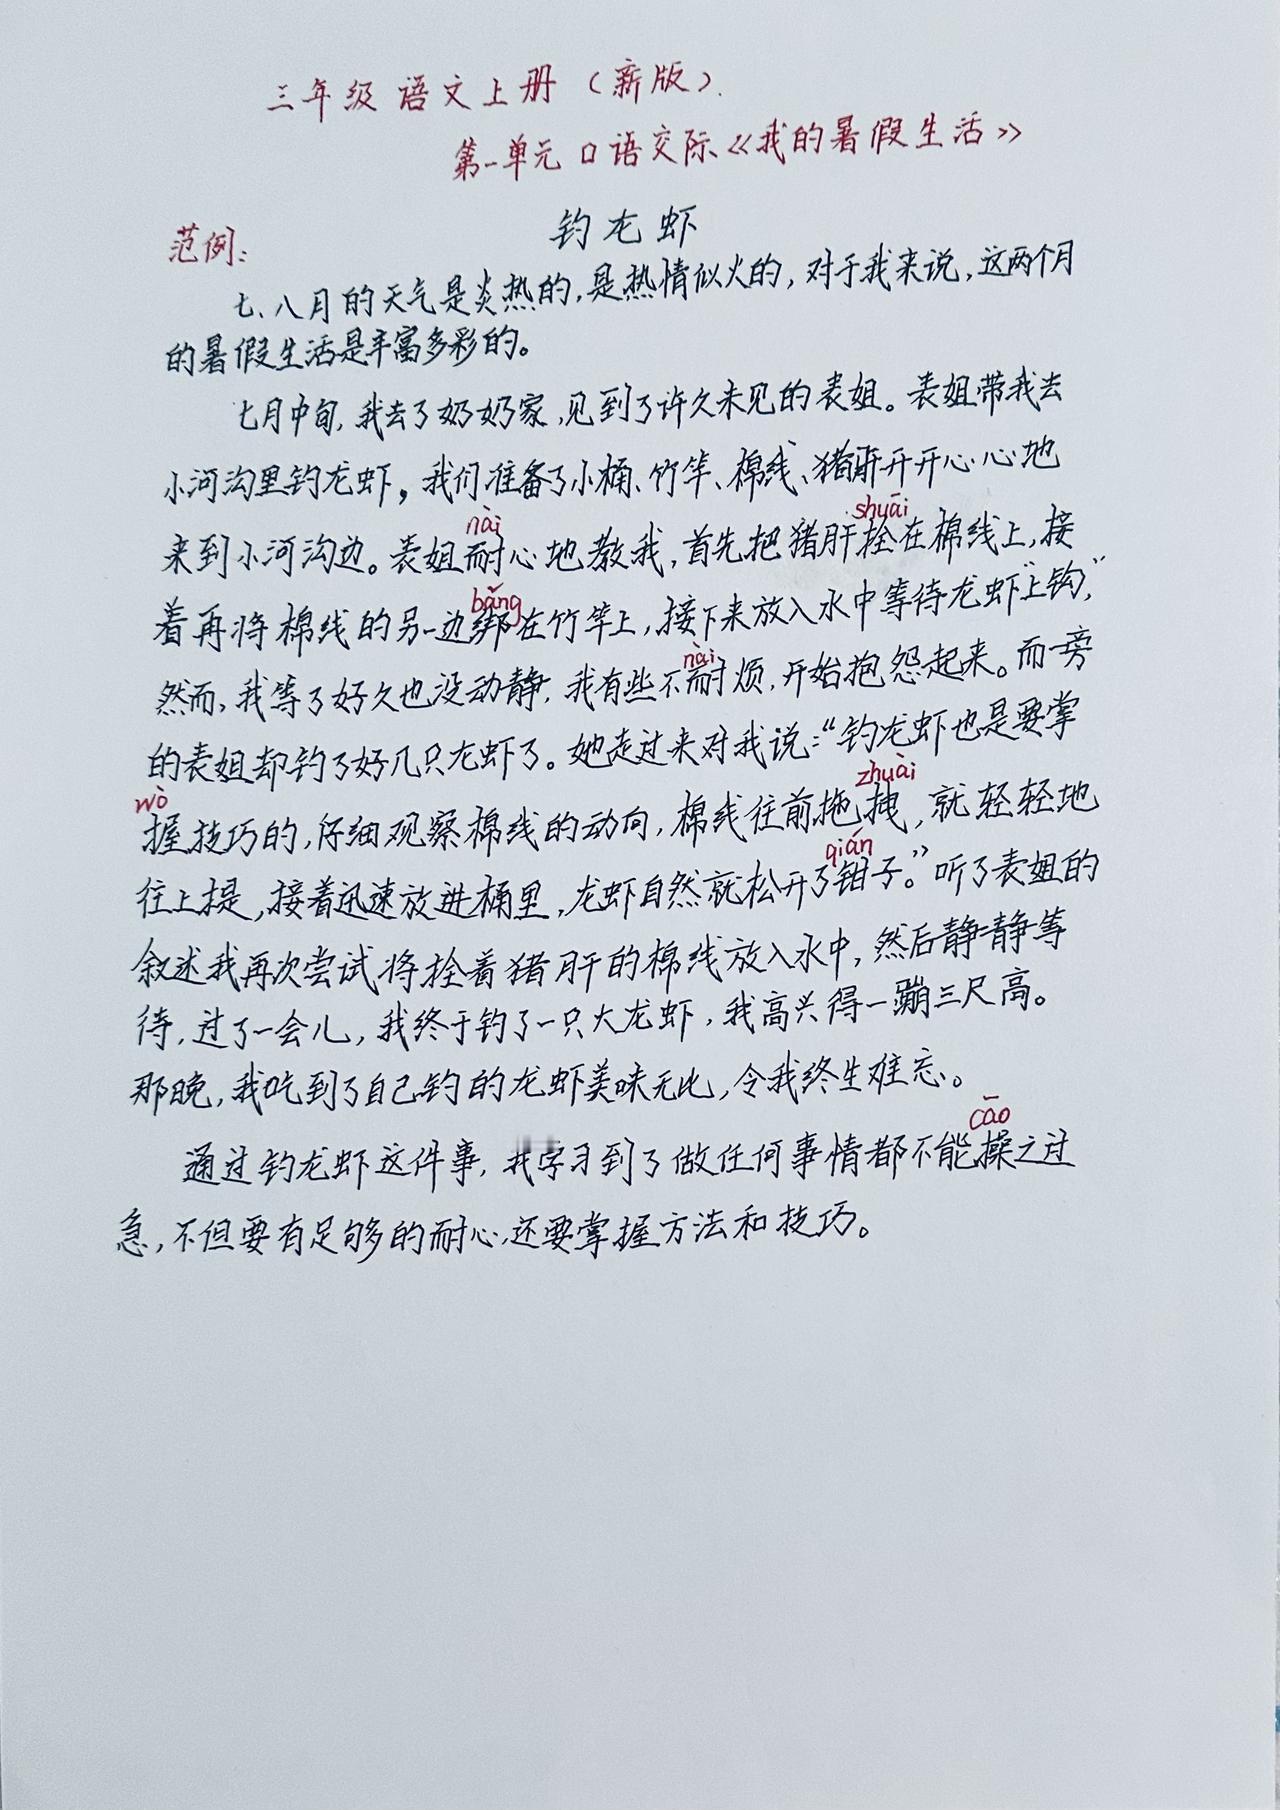 三年级语文上册（新版）.
第一单元口语交际《我的暑假生活》
范例:
钓龙虾
七、八月的天气是炎热的,是热情似火的,对于我来说,这两个月
的暑假生活是丰富多彩的。
七月中旬,我去了奶奶家,见到了许久未见的表姐。表姐带我去
小河沟里钓龙虾,我们准备了小桶、竹竿、棉线、猪肝开开心心地
nài shuāi
来到小河沟边。表姐耐心地教我,首先把猪肝拴在棉线上,接
bǎng
着再将棉线的另一边绑在竹竿上,接下来放入水中等待龙虾“上钩,”
nài
然而,我等了好久也没动静,我有些不耐烦,开始抱怨起来。而一旁
的表姐却钓了好几只龙虾了。她走过来对我说:“钓龙虾也是要掌
wò zhuài
握技巧的,仔细观察棉线的动向,棉线往前拖拽,就轻轻地
qián
往上提,接着迅速放进桶里,龙虾自然就松开了钳子。”听了表姐的
叙述我再次尝试将拴着猪肝的棉线放入水中,然后静静等
待,过了一会儿,我终于钓了一只大龙虾,我高兴得一蹦三尺高。
那晚,我吃到了自己钓的龙虾美味无比,令我终生难忘。
cāo
通过钓龙虾这件事,我学习到了做任何事情都不能操之过
急,不但要有足够的耐心,还要掌握方法和技巧。